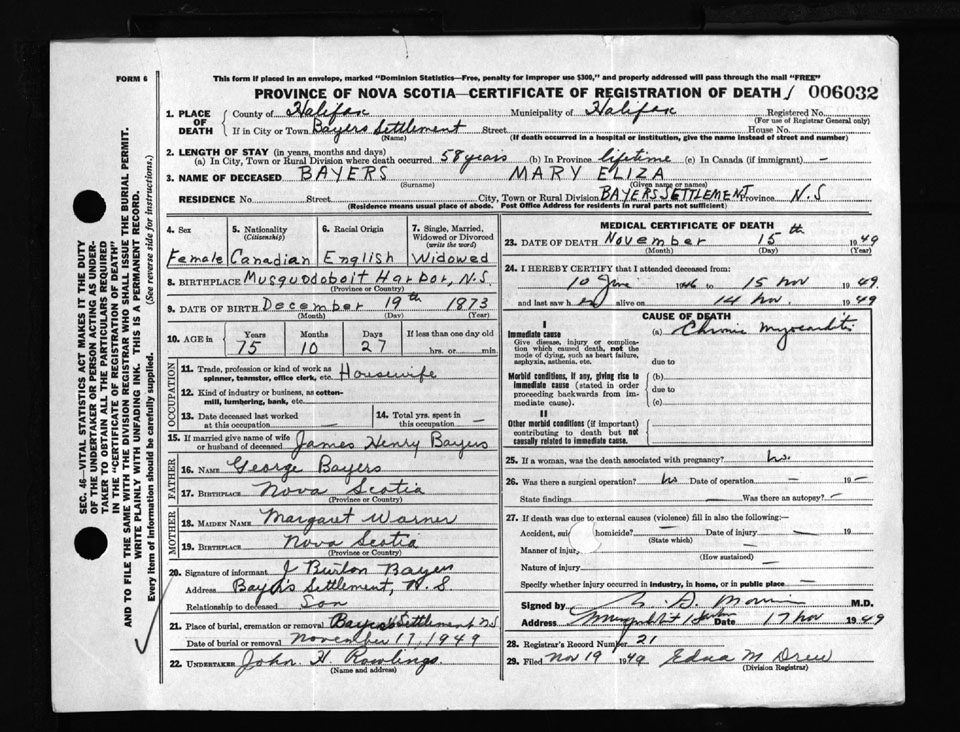 FORM 6
This form if placed in an envelope, marked "Dominion Statistics—Free, penalty for improper use $300," and properly addressed will pass through the mail "FREE"
PROVINCE OF NOVA SCOTIA—CERTIFICATE OF REGISTRATION OF DEATH 006032
SEC. 46—VITAL STATISTICS ACT MAKES IT THE DUTY
OF THE UNDERTAKER OR PERSON ACTING AS UNDER-
TAKER TO OBTAIN ALL THE PARTICULARS REQUIRED
IN THE "CERTIFICATE OF REGISTRATION OF DEATH"
AND TO FILE THE SAME WITH THE DIVISION REGISTRAR WHO SHALL ISSUE THE BURIAL PERMIT.
WRITE PLAINLY WITH UNFADING INK. THIS IS A PERMANENT RECORD.
Every item of information should be carefully supplied. (See reverse side for instructions.)
1. PLACE OF DEATH
County of Halifax Municipality of Halifax Registered No.
(For use of Registrar General only)
If in City or Town Bayers Settlement Street House No.
(Name) (If death occurred in a hospital or institution, give the name instead of street and number)
2. LENGTH OF STAY (in years, months and days)
(a) In City, Town or Rural Division where death occurred 58 years (b) In Province lifetime (c) In Canada (if immigrant) —
3. NAME OF DECEASED BAYERS MARY ELIZA
(Surname) (Given name or names)
RESIDENCE No. Street City, Town or Rural Division BAYERS SETTLEMENT Province N.S
(Residence means usual place of abode. Post Office Address for residents in rural parts not sufficient)
4. Sex 5. Nationality (Citizenship) 6. Racial Origin 7. Single, Married, Widowed or Divorced (write the word)
Female Canadian English Widowed
8. BIRTHPLACE Musquodoboit Harbor, N.S.
(Province or Country)
9. DATE OF BIRTH December 19th 1873
(Month) (Day) (Year)
10. AGE in Years Months Days If less than one day old
75 10 27 hrs. or min.
OCCUPATION
11. Trade, profession or kind of work as spinner, teamster, office clerk, etc. Housewife
12. Kind of industry or business, as cotton-mill, lumbering, bank, etc.
13. Date deceased last worked at this occupation — 14. Total yrs. spent in this occupation —
15. If married give name of wife or husband of deceased James Henry Bayers
FATHER
16. NAME George Bayers
17. BIRTHPLACE Nova Scotia
(Province or Country)
MOTHER
18. MAIDEN NAME Margaret Warner
19. BIRTHPLACE Nova Scotia
(Province or Country)
20. Signature of informant J Burton Bayers
Address Bayer's Settlement, N.S.
Relationship to deceased Son
21. Place of burial, cremation or removal Bayers Settlement NS
Date of burial or removal November 17, 1949
22. UNDERTAKER John H Rowlings
(Name and address)
MEDICAL CERTIFICATE OF DEATH
23. DATE OF DEATH November 15th 1949
(Month) (Day) (Year)
24. I HEREBY CERTIFY that I attended deceased from:
10 1946 to 15 Nov 1949
and last saw her alive on 14 Nov. 1949
CAUSE OF DEATH
I
Immediate cause (a) Chronic myocarditis
Give disease, injury or complica-
tion which caused death, not the
mode of dying, such as heart failure,
asphyxia, asthenia, etc. due to
Morbid conditions, if any, giving rise to (b)
immediate cause (stated in order due to
proceeding backwards from im-
mediate cause). (c)
II
Other morbid conditions (if important)
contributing to death but not
causally related to immediate cause.
25. If a woman, was the death associated with pregnancy? No.
26. Was there a surgical operation? No Date of operation — 19 —
State findings — Was there an autopsy? —
27. If death was due to external causes (violence) fill in also the following:—
Accident, homicide? — Date — 19
(State which)
Manner of injury —
(How sustained)
Nature of injury —
Specify whether injury occurred in industry, in home, or in public place —
Signed by M.D.
Address Date 17 Nov 1949
28. Registrar's Record Number 21
29. Filed Nov 19 1949 Edna M Drew
(Division Registrar)